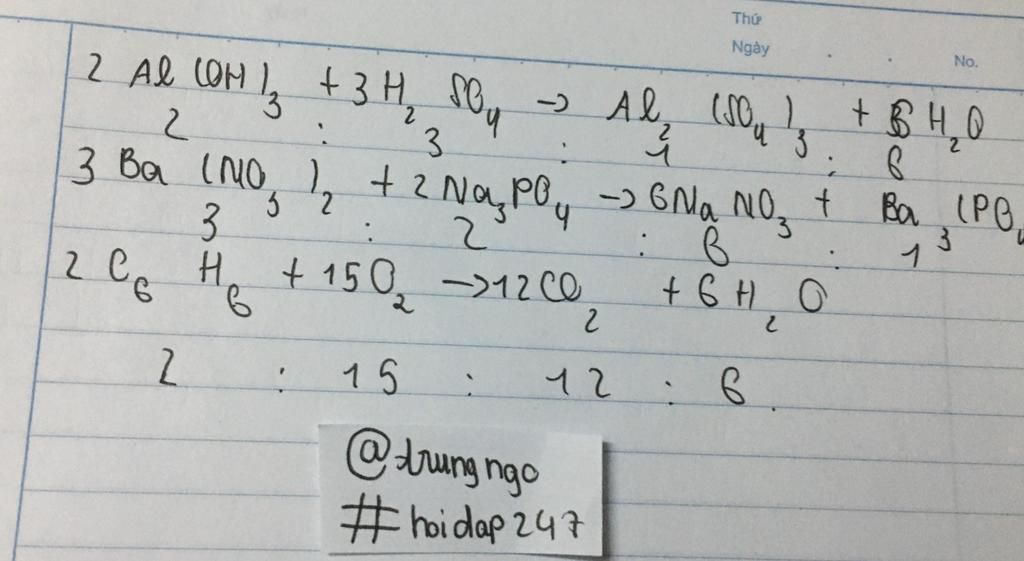 Thứ
Ngày
No.
2 Al(OH)₃ + 3H₂SO₄ → Al₂(SO₄)₃ + 6H₂O
2 : 3 : 1 : 6
3 Ba(NO₃)₂ + 2Na₃PO₄ → 6NaNO₃ + Ba₃(PO₄
3 : 2 : 6 : 1
2 C₆H₆ + 15O₂ → 12CO₂ + 6H₂O
2 : 15 : 12 : 6.
@trungngo
#hoidap247